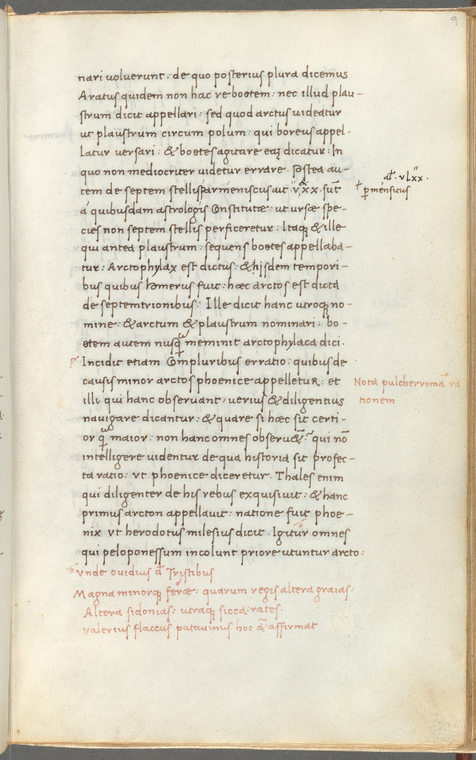 9
nari voluerunt: de quo posterius plura dicemus
Aratus quidem non hac re bootem: nec illud plau-
strum dicit appellari: sed quod arctus videatur
ut plaustrum circum polum: qui boreus appel-
latur versari: & bootes agitare eaq dicatur: In
quo non mediocriter videtur errare. Postea au-
tem de septem stellis parmeniscus aut sit
a quibusdam astrologis constitutæ: ut ursæ spe-
cies non septem stellis perficeretur: Itaq & ille
qui antea plaustrum: sequens bootes appellaba-
tur: Arctophylax est dictus: & hijsdem tempori-
bus quibus homerus fuit: hæc arctos est dicta
de septemtrionibus: Ille dicit hanc utroq no-
mine: & arctum & plaustrum nominari: bo-
otem autem nusq meminit arctophylaca dici.
Incidit etiam compluribus erratio: quibus de
causis minor arctos phoenice appelletur: et
illi qui hanc observant: verius & diligentius
navigare dicantur: & quare si hæc sit certi-
or q maior: non hanc omnes observet: qui nō
intelligere videntur de qua historia sit profec-
ta ratio: ut phoenice diceretur. Thales enim
qui diligenter de his rebus exquisivit: & hanc
primus arcton appellavit: natione fuit phoe-
nix ut herodotus milesius dicit. Igitur omnes
qui peloponessum incolunt priore utuntur arcto:
Vnde ovidius Tristibus
Magna minorq feræ: quarum regis altera graias:
Altera sidonias: utraq sicca: rates:
valerius flaccus patavinus hoc affirmat
pmenficus
Nota pulcherrimā
tionem